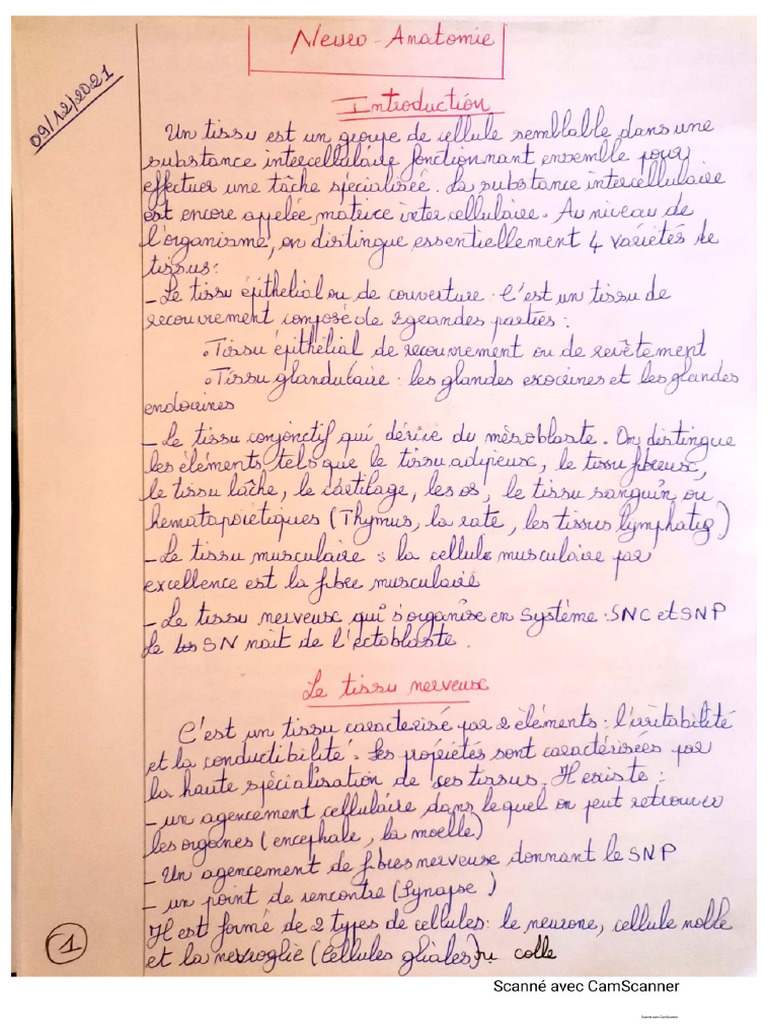 Neuro-Anatomie
09/12/2021
Introduction
Un tissu est un groupe de cellule semblable dans une
substance intercellulaire fonctionnant ensemble pour
effectuer une tâche spécialisée. La substance intercellulaire
est encore appelée matrice intercellulaire. Au niveau de
l'organisme, on distingue essentiellement 4 variétés de
tissus:
- Le tissu épithelial ou de couverture. C'est un tissu de
recouvrement composé de 2 grandes parties:
. Tissu épithélial de recouvrement ou de revêtement
. Tissu glandulaire: les glandes exocrines et les glandes
endocrines
- Le tissu conjonctif qui dérive du mésoblaste. On distingue
les éléments tels que le tissu adipeux, le tissu fibreux,
le tissu lâche, le cartilage, les os, le tissu sanguin ou
hematopoïétiques (Thymus, la rate, les tissus lymphatiq)
- Le tissu musculaire: la cellule musculaire par
excellence est la fibre musculaire
- Le tissu nerveux qui s'organise en système: SNC et SNP
Le SN nait de l'ectoblaste.
Le tissu nerveux
C'est un tissu caracterisé par 2 élèments: l'irritabilité
et la conductibilité. Les propiétés sont caractérisées par
la haute spécialisation de ces tissus. Il existe:
- un agencement cellulaire dans lequel on peut retrouver
les organes (encephale, la moelle)
- Un agencement de fibres nerveuse donnant le SNP
- un point de rencontre (Synapse)
Il est formé de 2 types de cellules: le neurone, cellule noble
et la nevroglie (Cellules gliales) colle
1
Scanné avec CamScanner
Scanné avec CamScanner